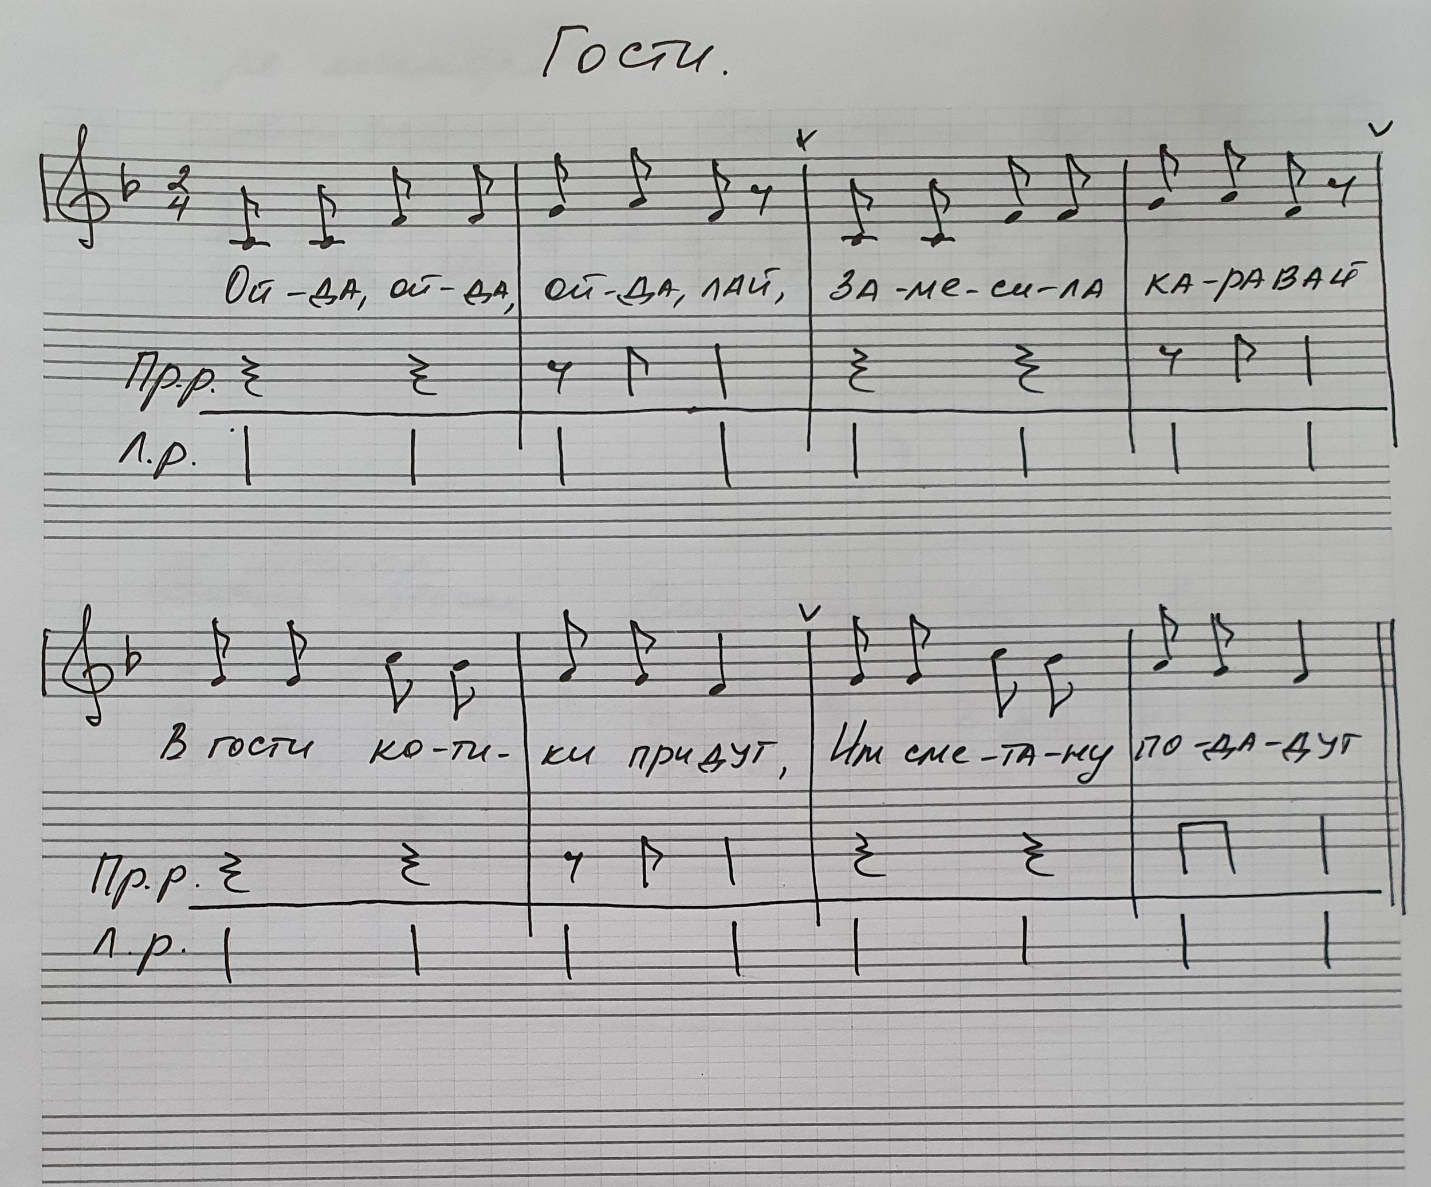 Гости.
2
4
Ой-да, ой-да, ой-да, лай, за-ме-си-ла ка-равай
Пр.р.
Л.р.
В гости ко-ти-ки придут, Им сме-та-ну по-да-дут
Пр.р.
Л.р.